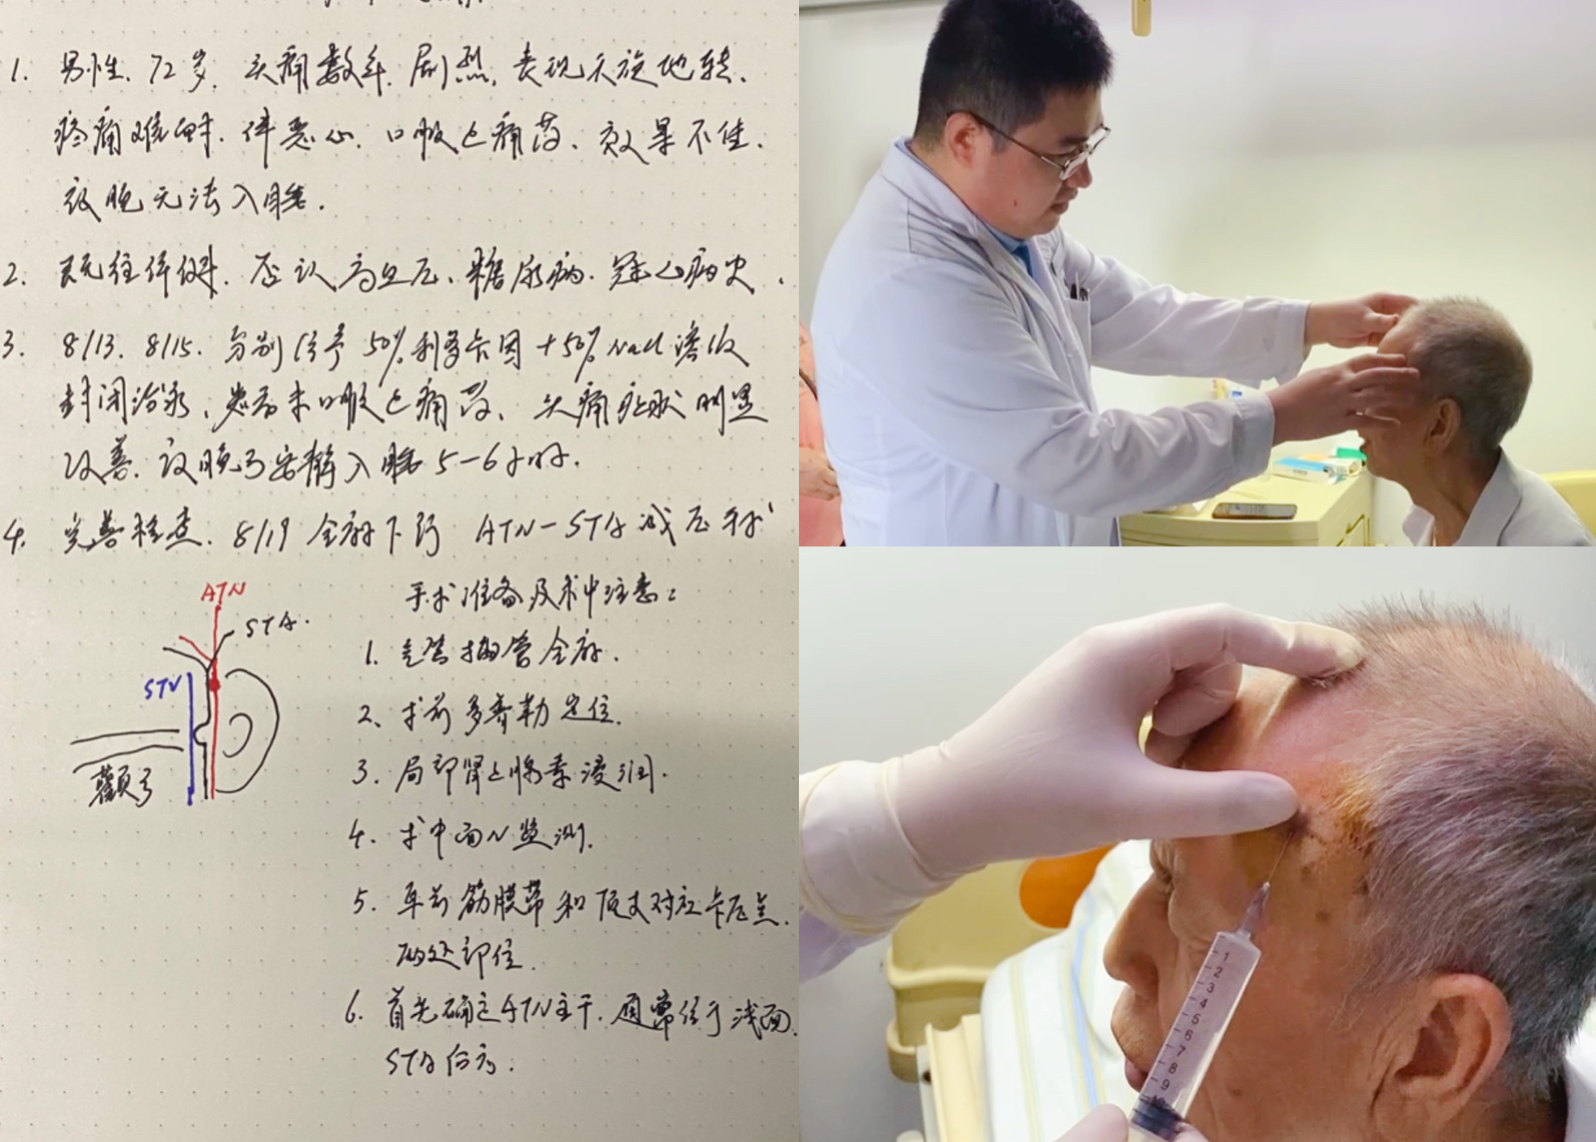 1. 男性. 72岁. 头痛数年. 剧烈. 表现天旋地转、
疼痛难耐. 伴恶心. 口服止痛药、效果不佳.
夜晚无法入睡.
2. 既往体健. 否认高血压、糖尿病. 冠心病史.
3. 8/13. 8/15. 分别给予50%利多卡因+50%NaCl溶液
封闭治疗、患者未口服止痛药、头痛症状明显
改善. 夜晚可安静入睡5-6小时.
4. 完善检查. 8/19 全麻下行 ATN-STA减压术
手术准备及术中注意:
1. 气管插管全麻.
2、术前多普勒定位.
3. 局部肾上腺素浸润.
4. 术中面N监测.
5. 耳前筋膜带和顶支对应卡压点.
两处部位.
6. 首先确定ATN主干. 通常位于浅面.
STA后方.
ATN
STA.
STV
颧弓
1
2
3
4
5
6
7
8
9
10